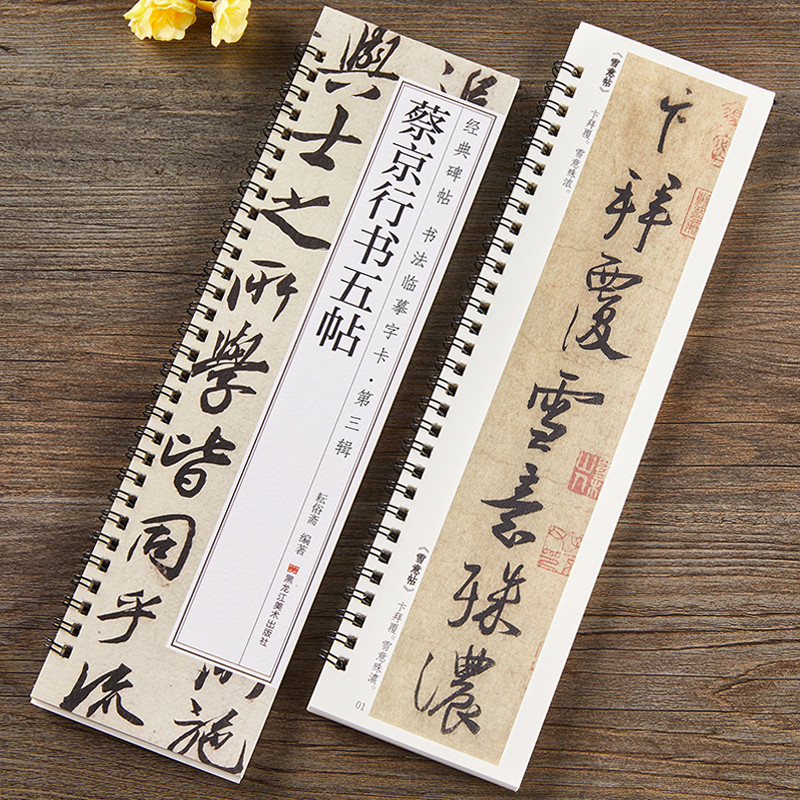 经典碑帖 书法临摹字卡·第三辑
蔡京行书五帖
耘俗斋 编著
黑龙江美术出版社
與士之所學皆同乎流
施
《雪意帖》
卞拜覆。雪意殊浓。
卞拜覆雪意殊濃
《雪意帖》
卞拜覆。雪意殊濃。
01